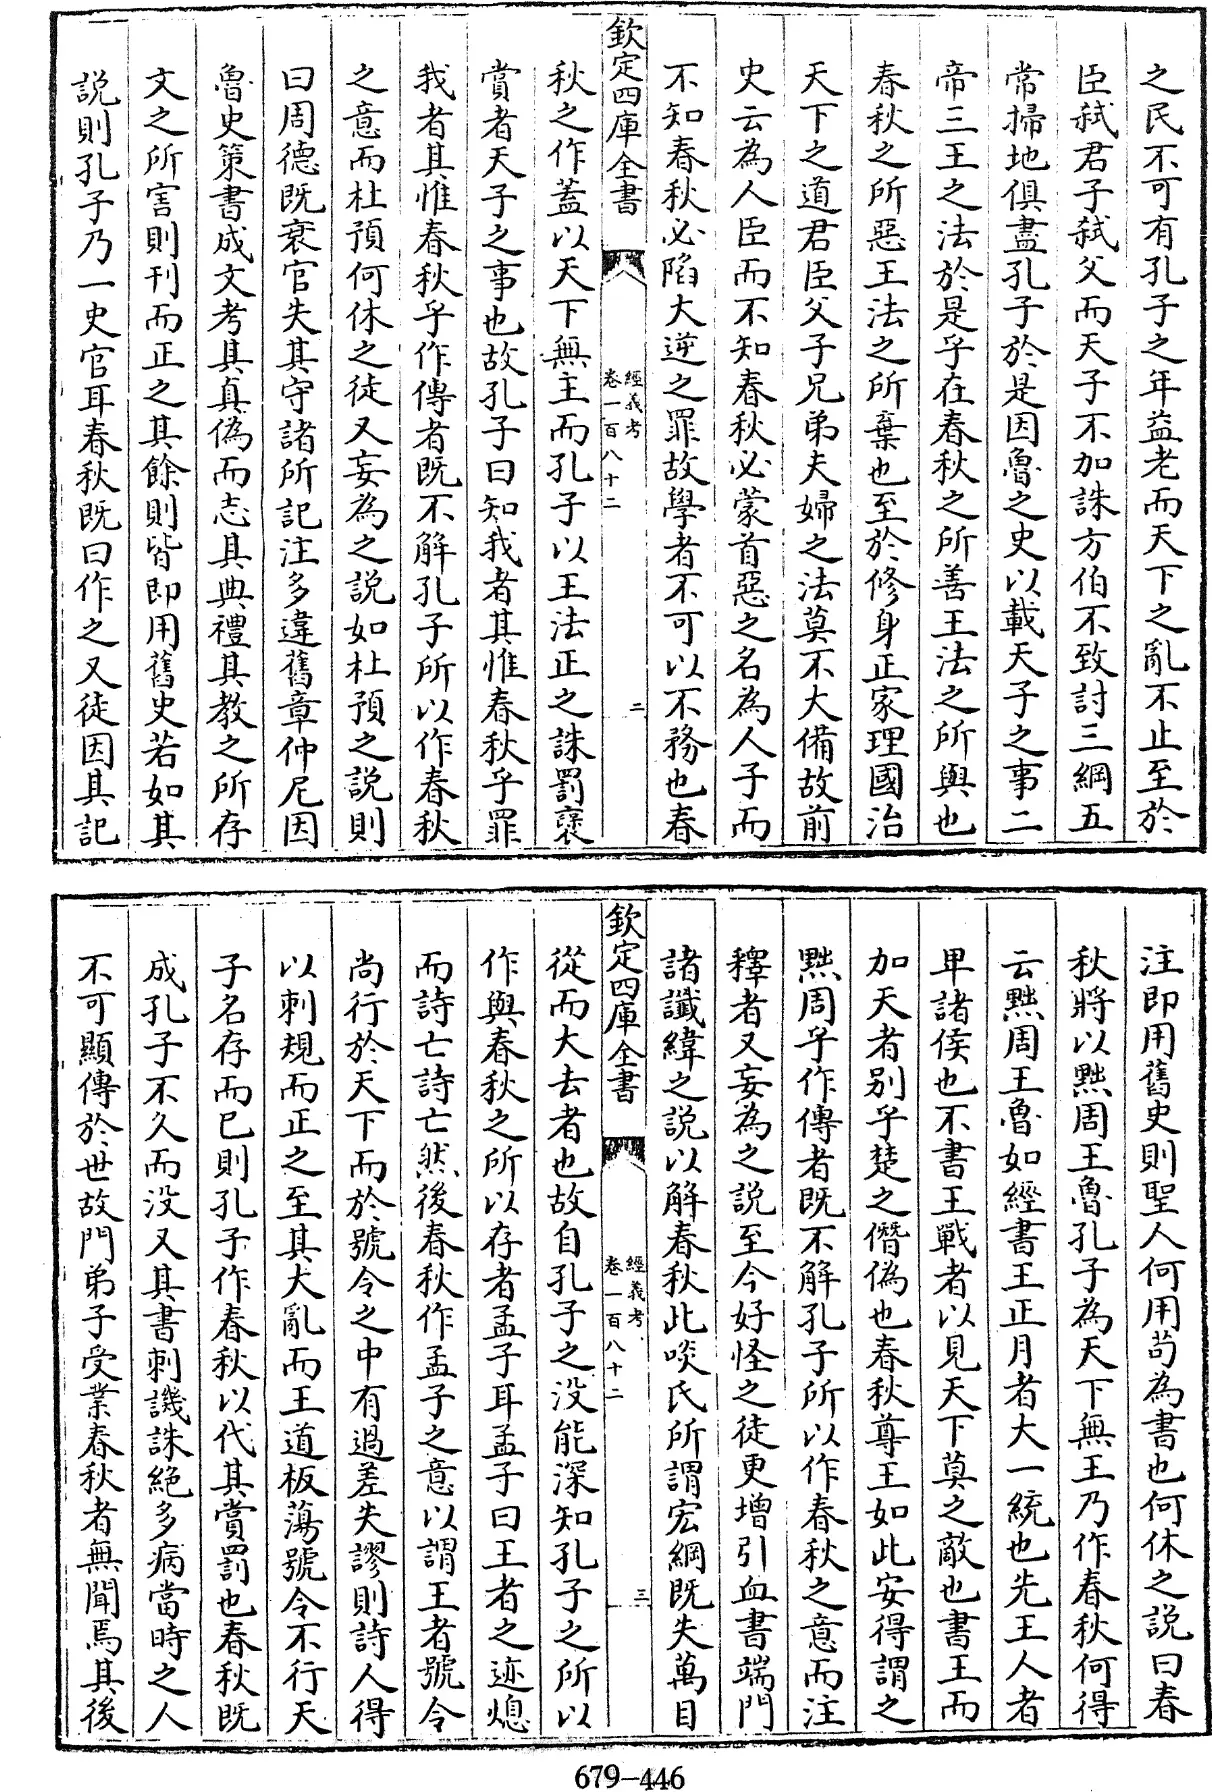 之民不可有孔子之年益老而天下之亂不止至於
臣弑君子弑父而天子不加誅方伯不致討三綱五
常掃地俱盡孔子於是因魯之史以載天子之事二
帝三王之法於是乎在春秋之所善王法之所與也
春秋之所惡王法之所棄也至於修身正家理國治
天下之道君臣父子兄弟夫婦之法莫不大備故前
史云為人臣而不知春秋必蒙首惡之名為人子而
不知春秋必陷大逆之罪故學者不可以不務也春
欽定四庫全書
經義考
卷一百八十二
二
秋之作蓋以天下無主而孔子以王法正之誅罰褒
賞者天子之事也故孔子曰知我者其惟春秋乎罪
我者其惟春秋乎作傳者既不解孔子所以作春秋
之意而杜預何休之徒又妄為之說如杜預之說則
曰周德既衰官失其守諸所記注多違舊章仲尼因
魯史策書成文考其真偽而志其典禮其教之所存
文之所害則刊而正之其餘則皆即用舊史若如其
說則孔子乃一史官耳春秋既曰作之又徒因其記
注即用舊史則聖人何用苟為書也何休之說曰春
秋將以黜周王魯孔子為天下無王乃作春秋何得
云黜周王魯如經書王正月者大一統也先王人者
卑諸侯也不書王戰者以見天下莫之敵也書王而
加天者别乎楚之僭偽也春秋尊王如此安得謂之
黜周乎作傳者既不解孔子所以作春秋之意而注
釋者又妄為之說至今好怪之徒更增引血書端門
諸讖緯之說以解春秋此啖氏所謂宏綱既失萬目
欽定四庫全書
經義考
卷一百八十二
三
從而大去者也故自孔子之没能深知孔子之所以
作與春秋之所以存者孟子耳孟子曰王者之迹熄
而詩亡詩亡然後春秋作孟子之意以謂王者號令
尚行於天下而於號令之中有過差失謬則詩人得
以刺規而正之至其大亂而王道板蕩號令不行天
子名存而已則孔子作春秋以代其賞罰也春秋既
成孔子不久而没又其書刺譏誅絕多病當時之人
不可顯傳於世故門弟子受業春秋者無聞焉其後
679-446